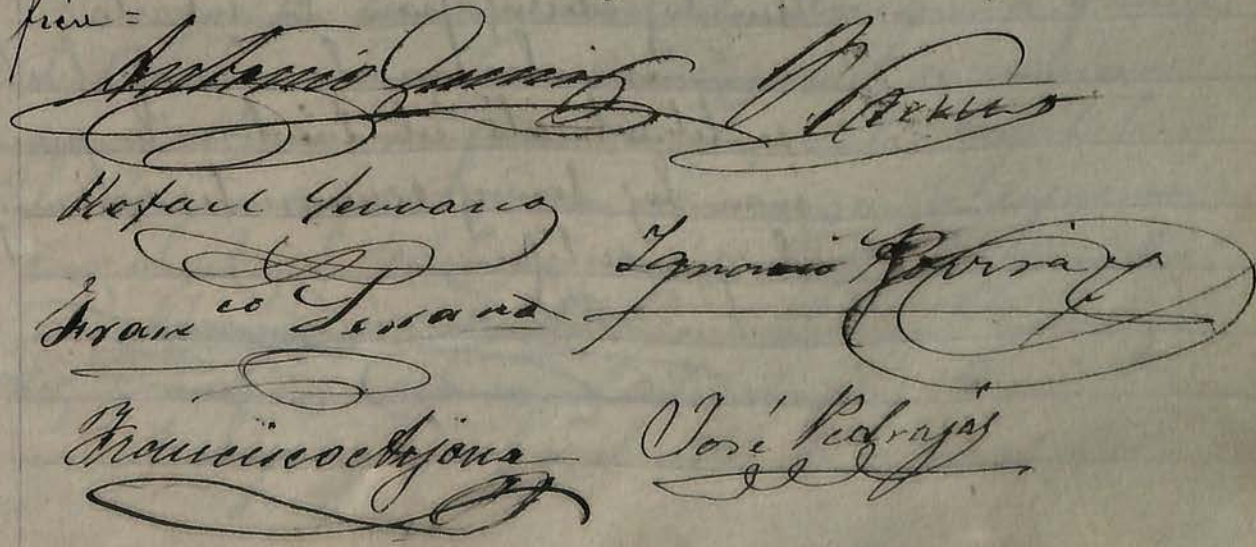 Antonio
Rafael Serrano
Ignacio Rovira
Franco Serrano
Francisco Arjona
José Pedrajas